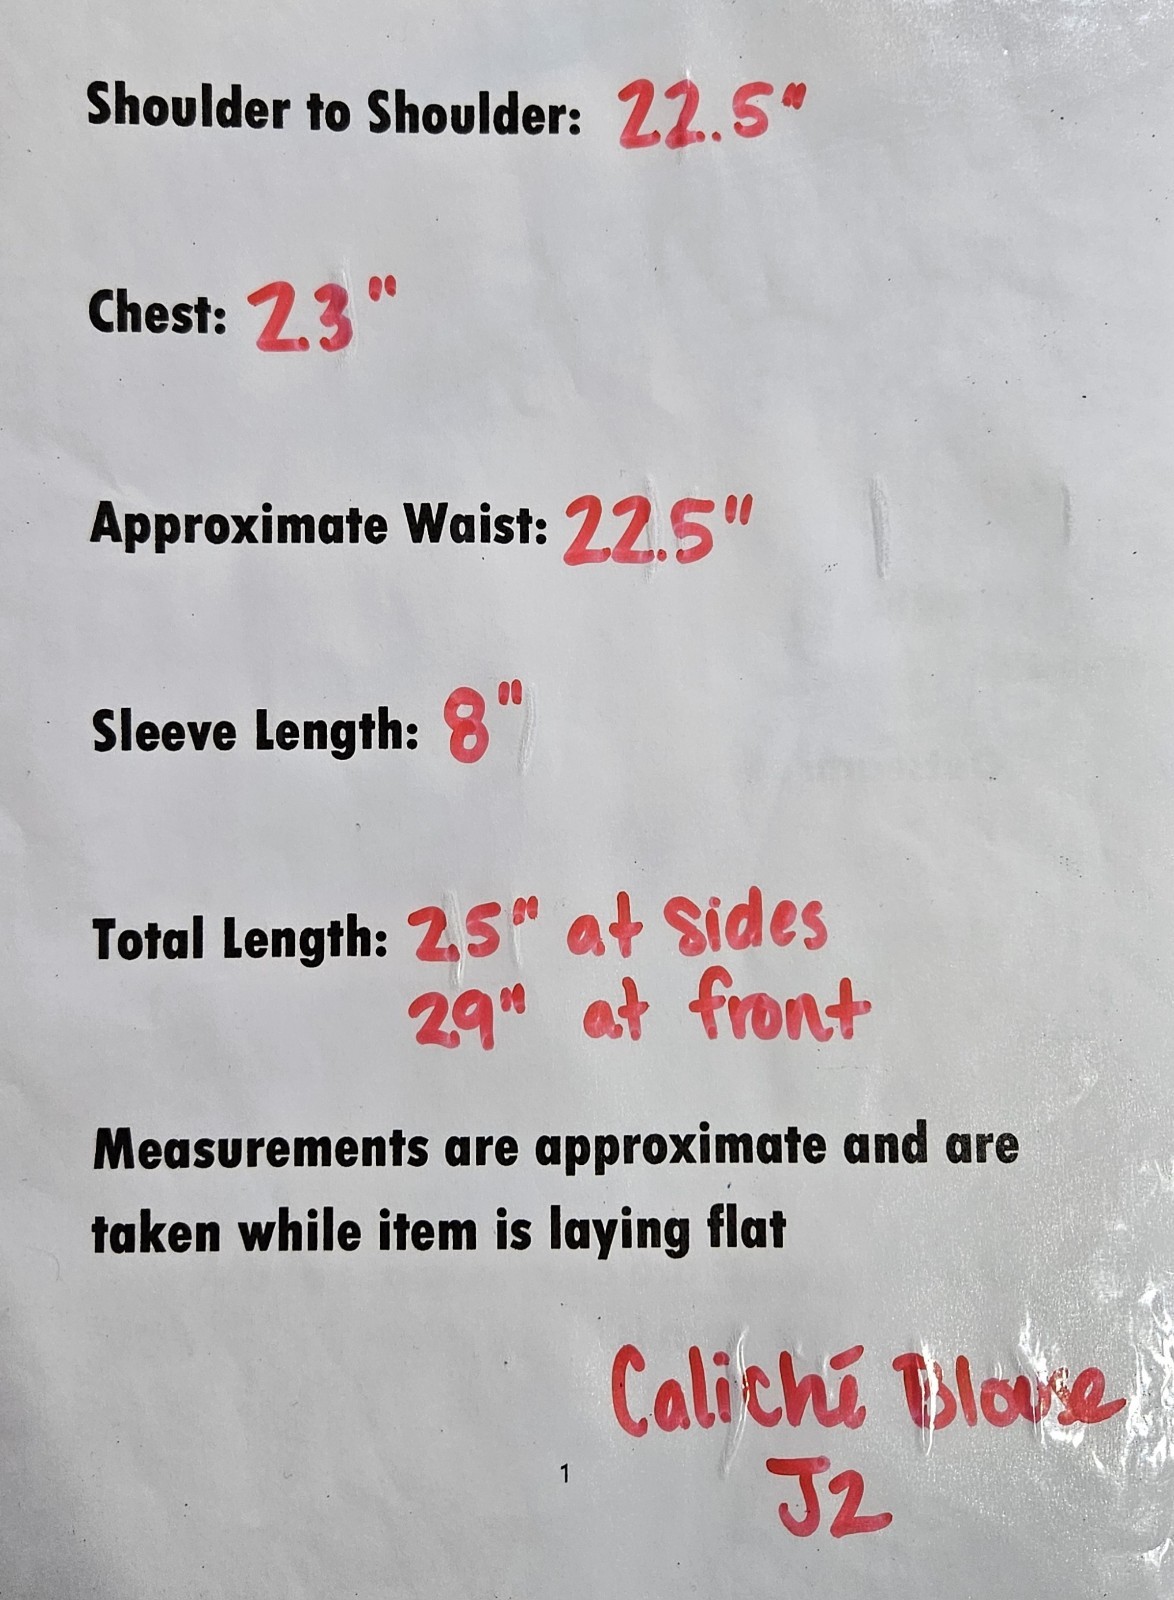 Shoulder to Shoulder: 22.5"
Chest: 23"
Approximate Waist: 22.5"
Sleeve Length: 8"
Total Length: 25" at sides
29" at front
Measurements are approximate and are
taken while item is laying flat
Caliché Blouse
1
J2